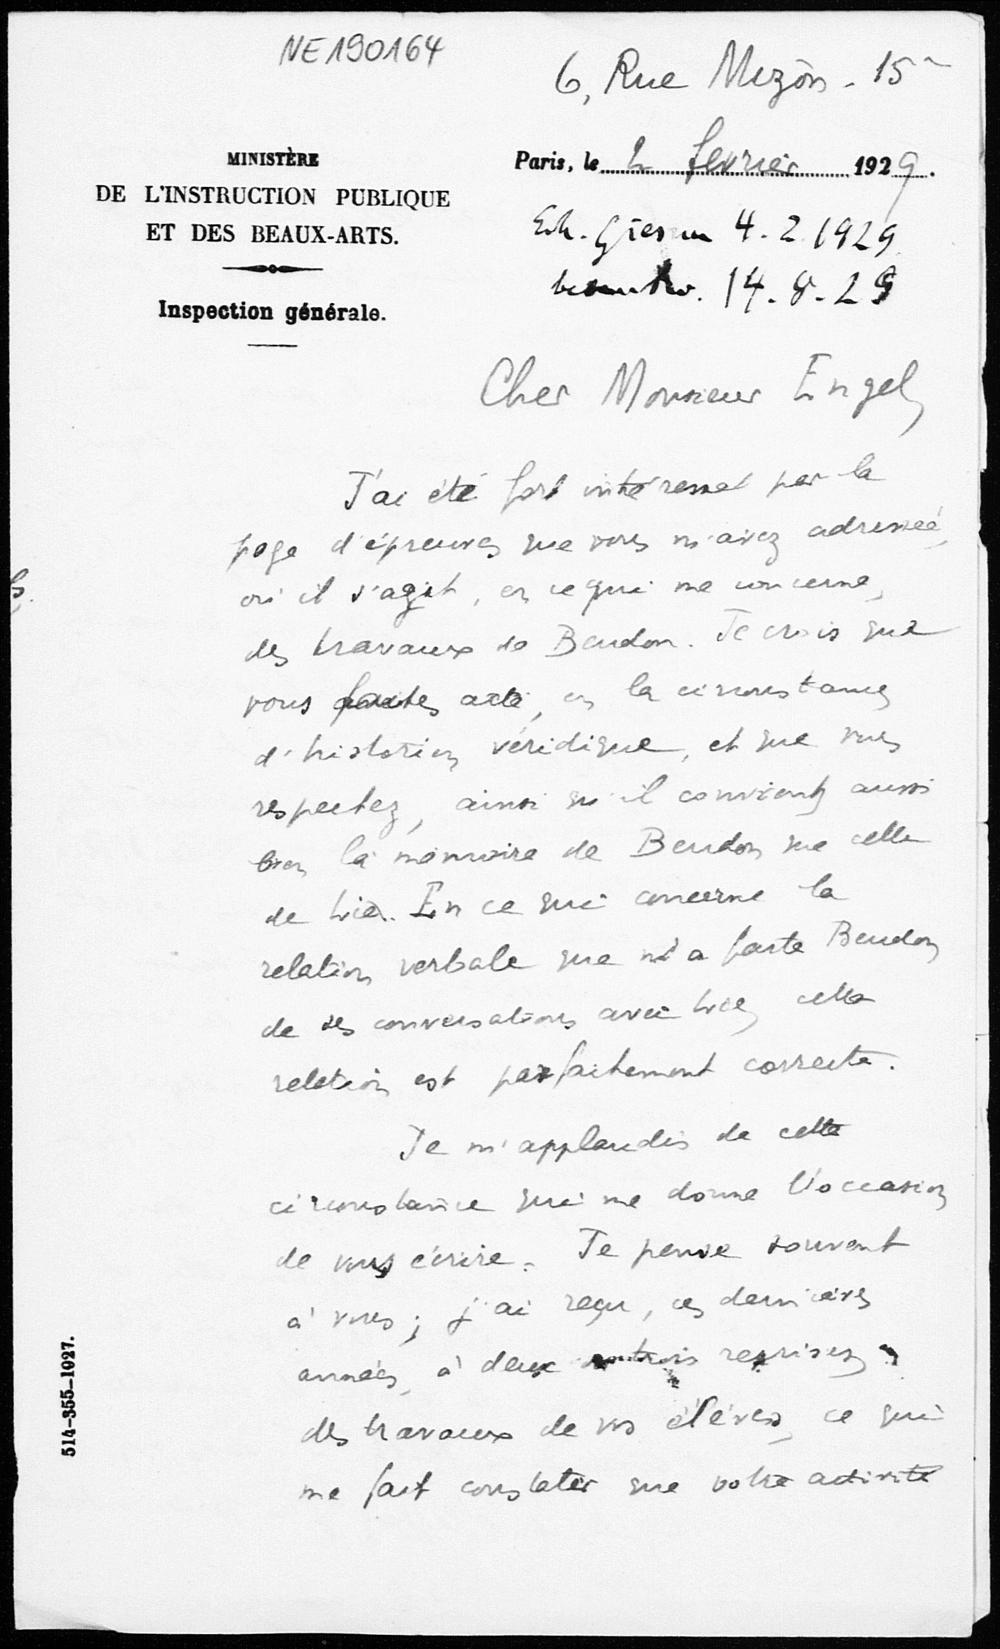 NE190164
6, Rue Mizon - 15e
MINISTÈRE
DE L'INSTRUCTION PUBLIQUE
ET DES BEAUX-ARTS.
Inspection générale.
Paris, le 2 février 1929.
Erh. Giessen 4.2.1929
beantw. 14.8.29
Cher Monsieur Engel,
J'ai été fort intéressé par la
page d'épreuves que vous m'avez adressée,
où il s'agit, en ce qui me concerne,
des travaux de Beudon. Je crois que
vous faites acte, en la circonstance,
d'historien véridique, et que vous
respectez, ainsi qu'il convient, aussi
bien la mémoire de Beudon que celle
de Lie. En ce qui concerne la
relation verbale que m'a faite Beudon
de ses conversations avec Lie, cette
relation est parfaitement correcte.
Je m'applaudis de cette
circonstance qui me donne l'occasion
de vous écrire. Je pense souvent
à vous ; j'ai reçu, ces dernières
années, à deux ou trois reprises,
des travaux de vos élèves, ce qui
me fait constater que votre activité
514-355-1927.